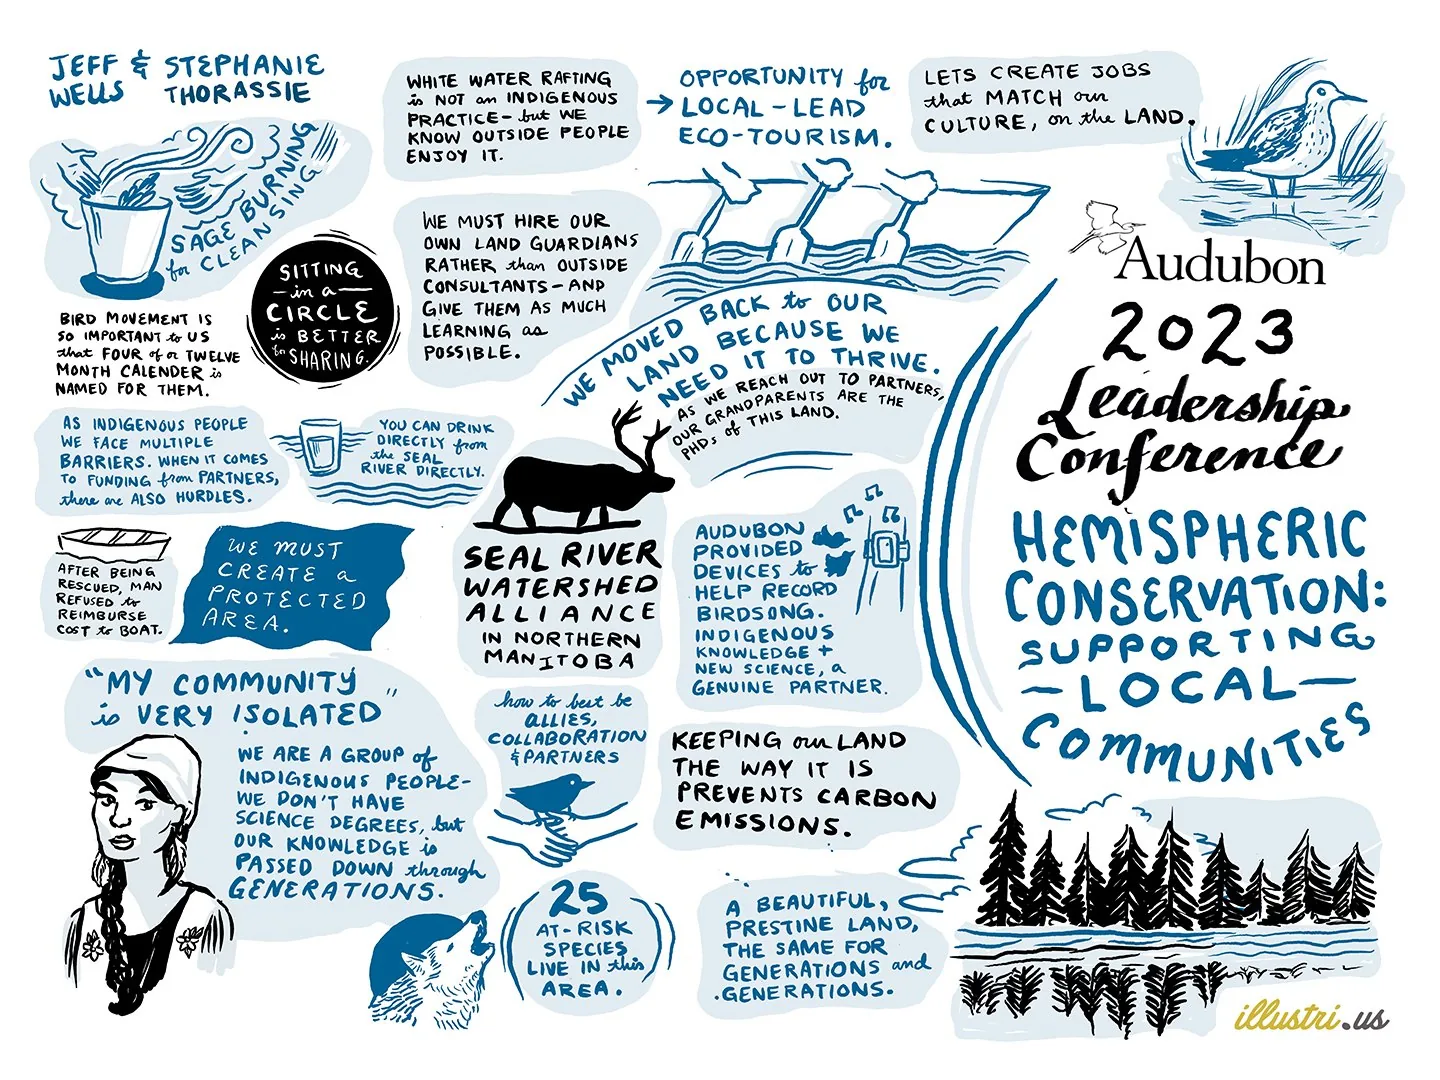 JEFF & STEPHANIE
WELLS THORASSIE
SAGE BURNING
for CLEANSING
SITTING
in a
CIRCLE
is BETTER
for SHARING.
BIRD MOVEMENT IS
SO IMPORTANT to US
that FOUR of a TWELVE
MONTH CALENDER is
NAMED FOR THEM.
AS INDIGENOUS PEOPLE
WE FACE MULTIPLE
BARRIERS. WHEN IT COMES
TO FUNDING from PARTNERS,
there are ALSO HURDLES.
YOU CAN DRINK
DIRECTLY from
the SEAL
RIVER DIRECTLY.
AFTER BEING
RESCUED, MAN
REFUSED to
REIMBURSE
COST to BOAT.
WE MUST
CREATE a
PROTECTED
AREA.
"MY COMMUNITY
is VERY ISOLATED"
WE ARE A GROUP of
INDIGENOUS PEOPLE-
WE DON'T HAVE
SCIENCE DEGREES, but
OUR KNOWLEDGE is
PASSED DOWN through
GENERATIONS.
WHITE WATER RAFTING
is NOT an INDIGENOUS
PRACTICE - but WE
KNOW OUTSIDE PEOPLE
ENJOY IT.
OPPORTUNITY for
→ LOCAL-LEAD
ECO-TOURISM.
LETS CREATE JOBS
that MATCH our
CULTURE, on the LAND.
WE MUST HIRE OUR
OWN LAND GUARDIANS
RATHER than OUTSIDE
CONSULTANTS - AND
GIVE THEM AS MUCH
LEARNING as
POSSIBLE.
WE MOVED BACK to OUR
LAND BECAUSE WE
NEED IT TO THRIVE.
AS WE REACH OUT TO PARTNERS,
OUR GRANDPARENTS ARE THE
PHDs of THIS LAND.
SEAL RIVER
WATERSHED
ALLIANCE
IN NORTHERN
MANITOBA
AUDUBON
PROVIDED
DEVICES to
HELP RECORD
BIRDSONG.
INDIGENOUS
KNOWLEDGE +
NEW SCIENCE, a
GENUINE PARTNER.
how to best be
ALLIES,
COLLABORATION
& PARTNERS
KEEPING our LAND
THE WAY IT IS
PREVENTS CARBON
EMISSIONS.
25
AT-RISK
SPECIES
LIVE IN this
AREA.
A BEAUTIFUL,
PRESTINE LAND,
THE SAME FOR
GENERATIONS and
GENERATIONS.
Audubon
2023
Leadership
Conference
HEMISPHERIC
CONSERVATION:
SUPPORTING
- LOCAL -
COMMUNITIES
illustri.us